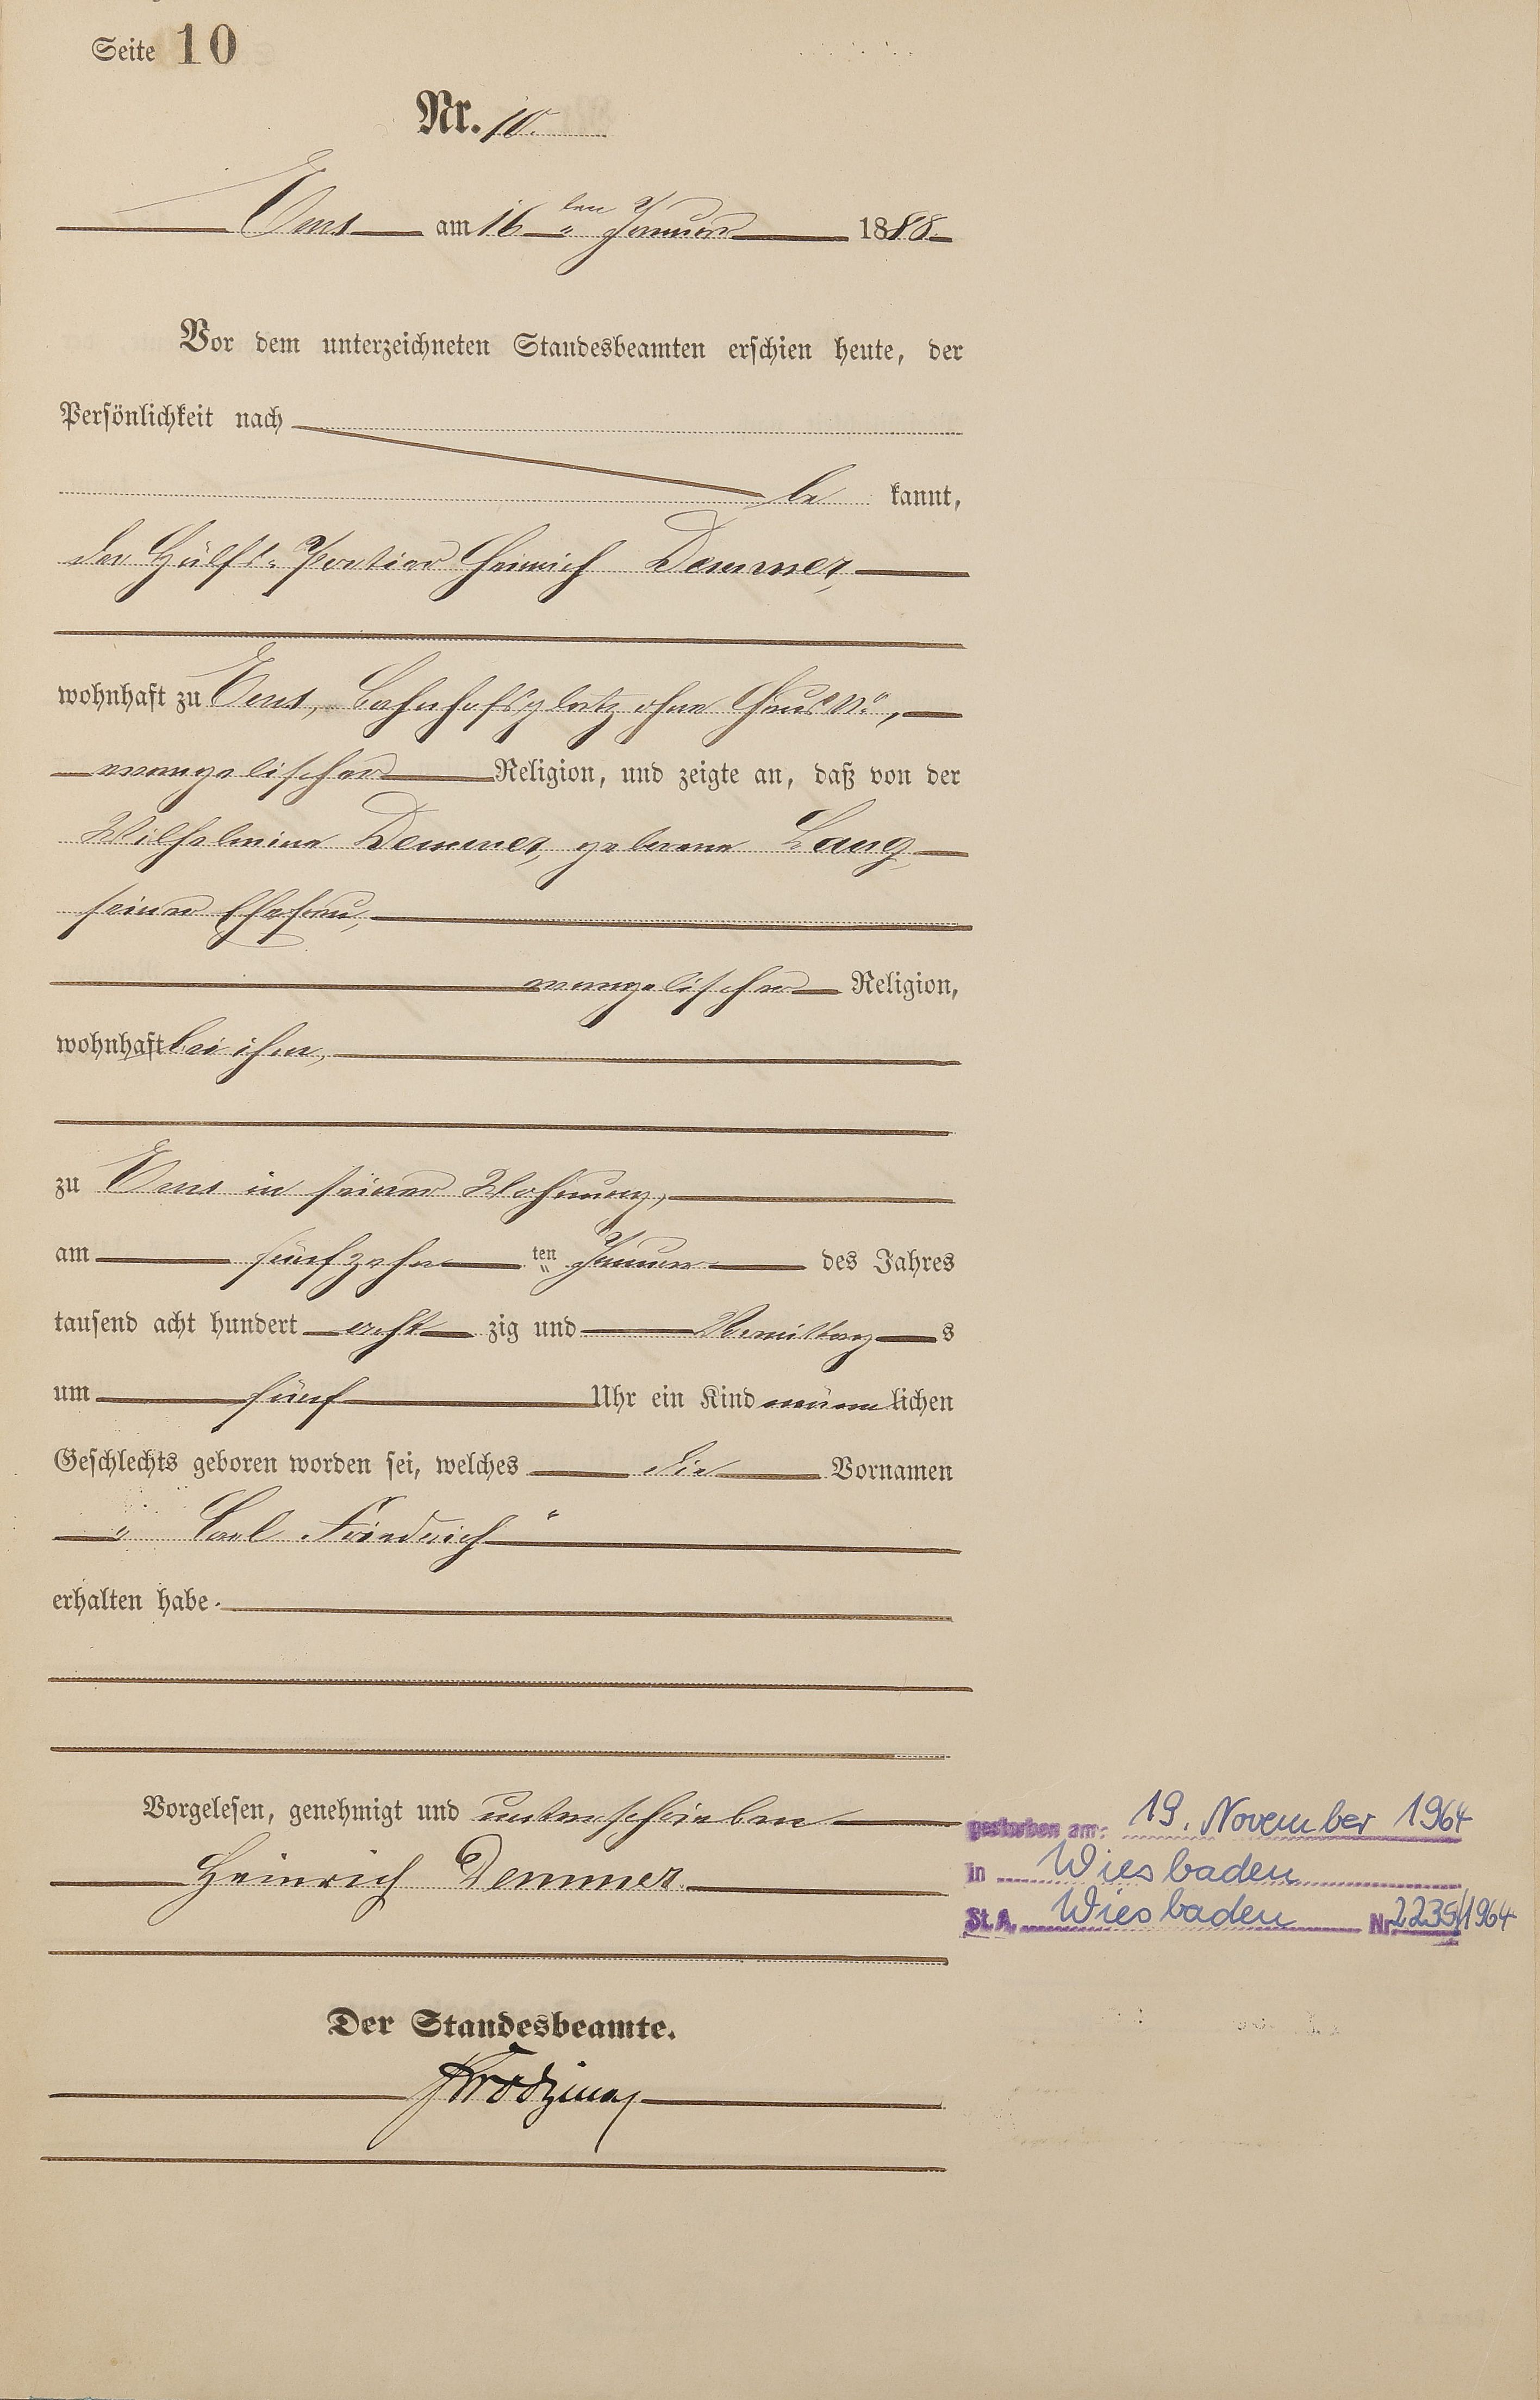 Seite 10
Nr. 10.
Ems am 16ten Januar 1888.
Vor dem unterzeichneten Standesbeamten erschien heute, der
Persönlichkeit nach
be kannt,
der Hülfs-Portier Heinrich Demmer,
wohnhaft zu Ems, Bahnhofsplatz ohne Haus No,
evangelischer Religion, und zeigte an, daß von der
Wilhelmine Demmer, geborene Lang,
seiner Ehefrau,
evangelischer Religion,
wohnhaft bei ihm,
zu Ems in seiner Wohnung,
am fünfzehn ten Januar des Jahres
tausend acht hundert acht zig und Vormittag s
um fünf Uhr ein Kind männ lichen
Geschlechts geboren worden sei, welches die Vornamen
" Carl Friedrich "
erhalten habe.
Vorgelesen, genehmigt und unterschrieben
Heinrich Demmer.
gestorben am: 19. November 1964
in Wiesbaden
St.A. Wiesbaden Nr. 2235/1964
Der Standesbeamte.